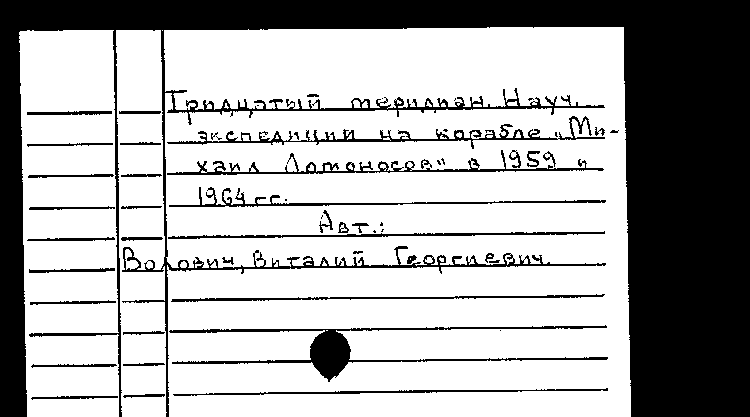 Тридцатый меридиан. Науч.
экспедиции на корабле „Ми-
хаил Ломоносов" в 1959 и
1964 гг.
Авт.:
Волович, Виталий Георгиевич.